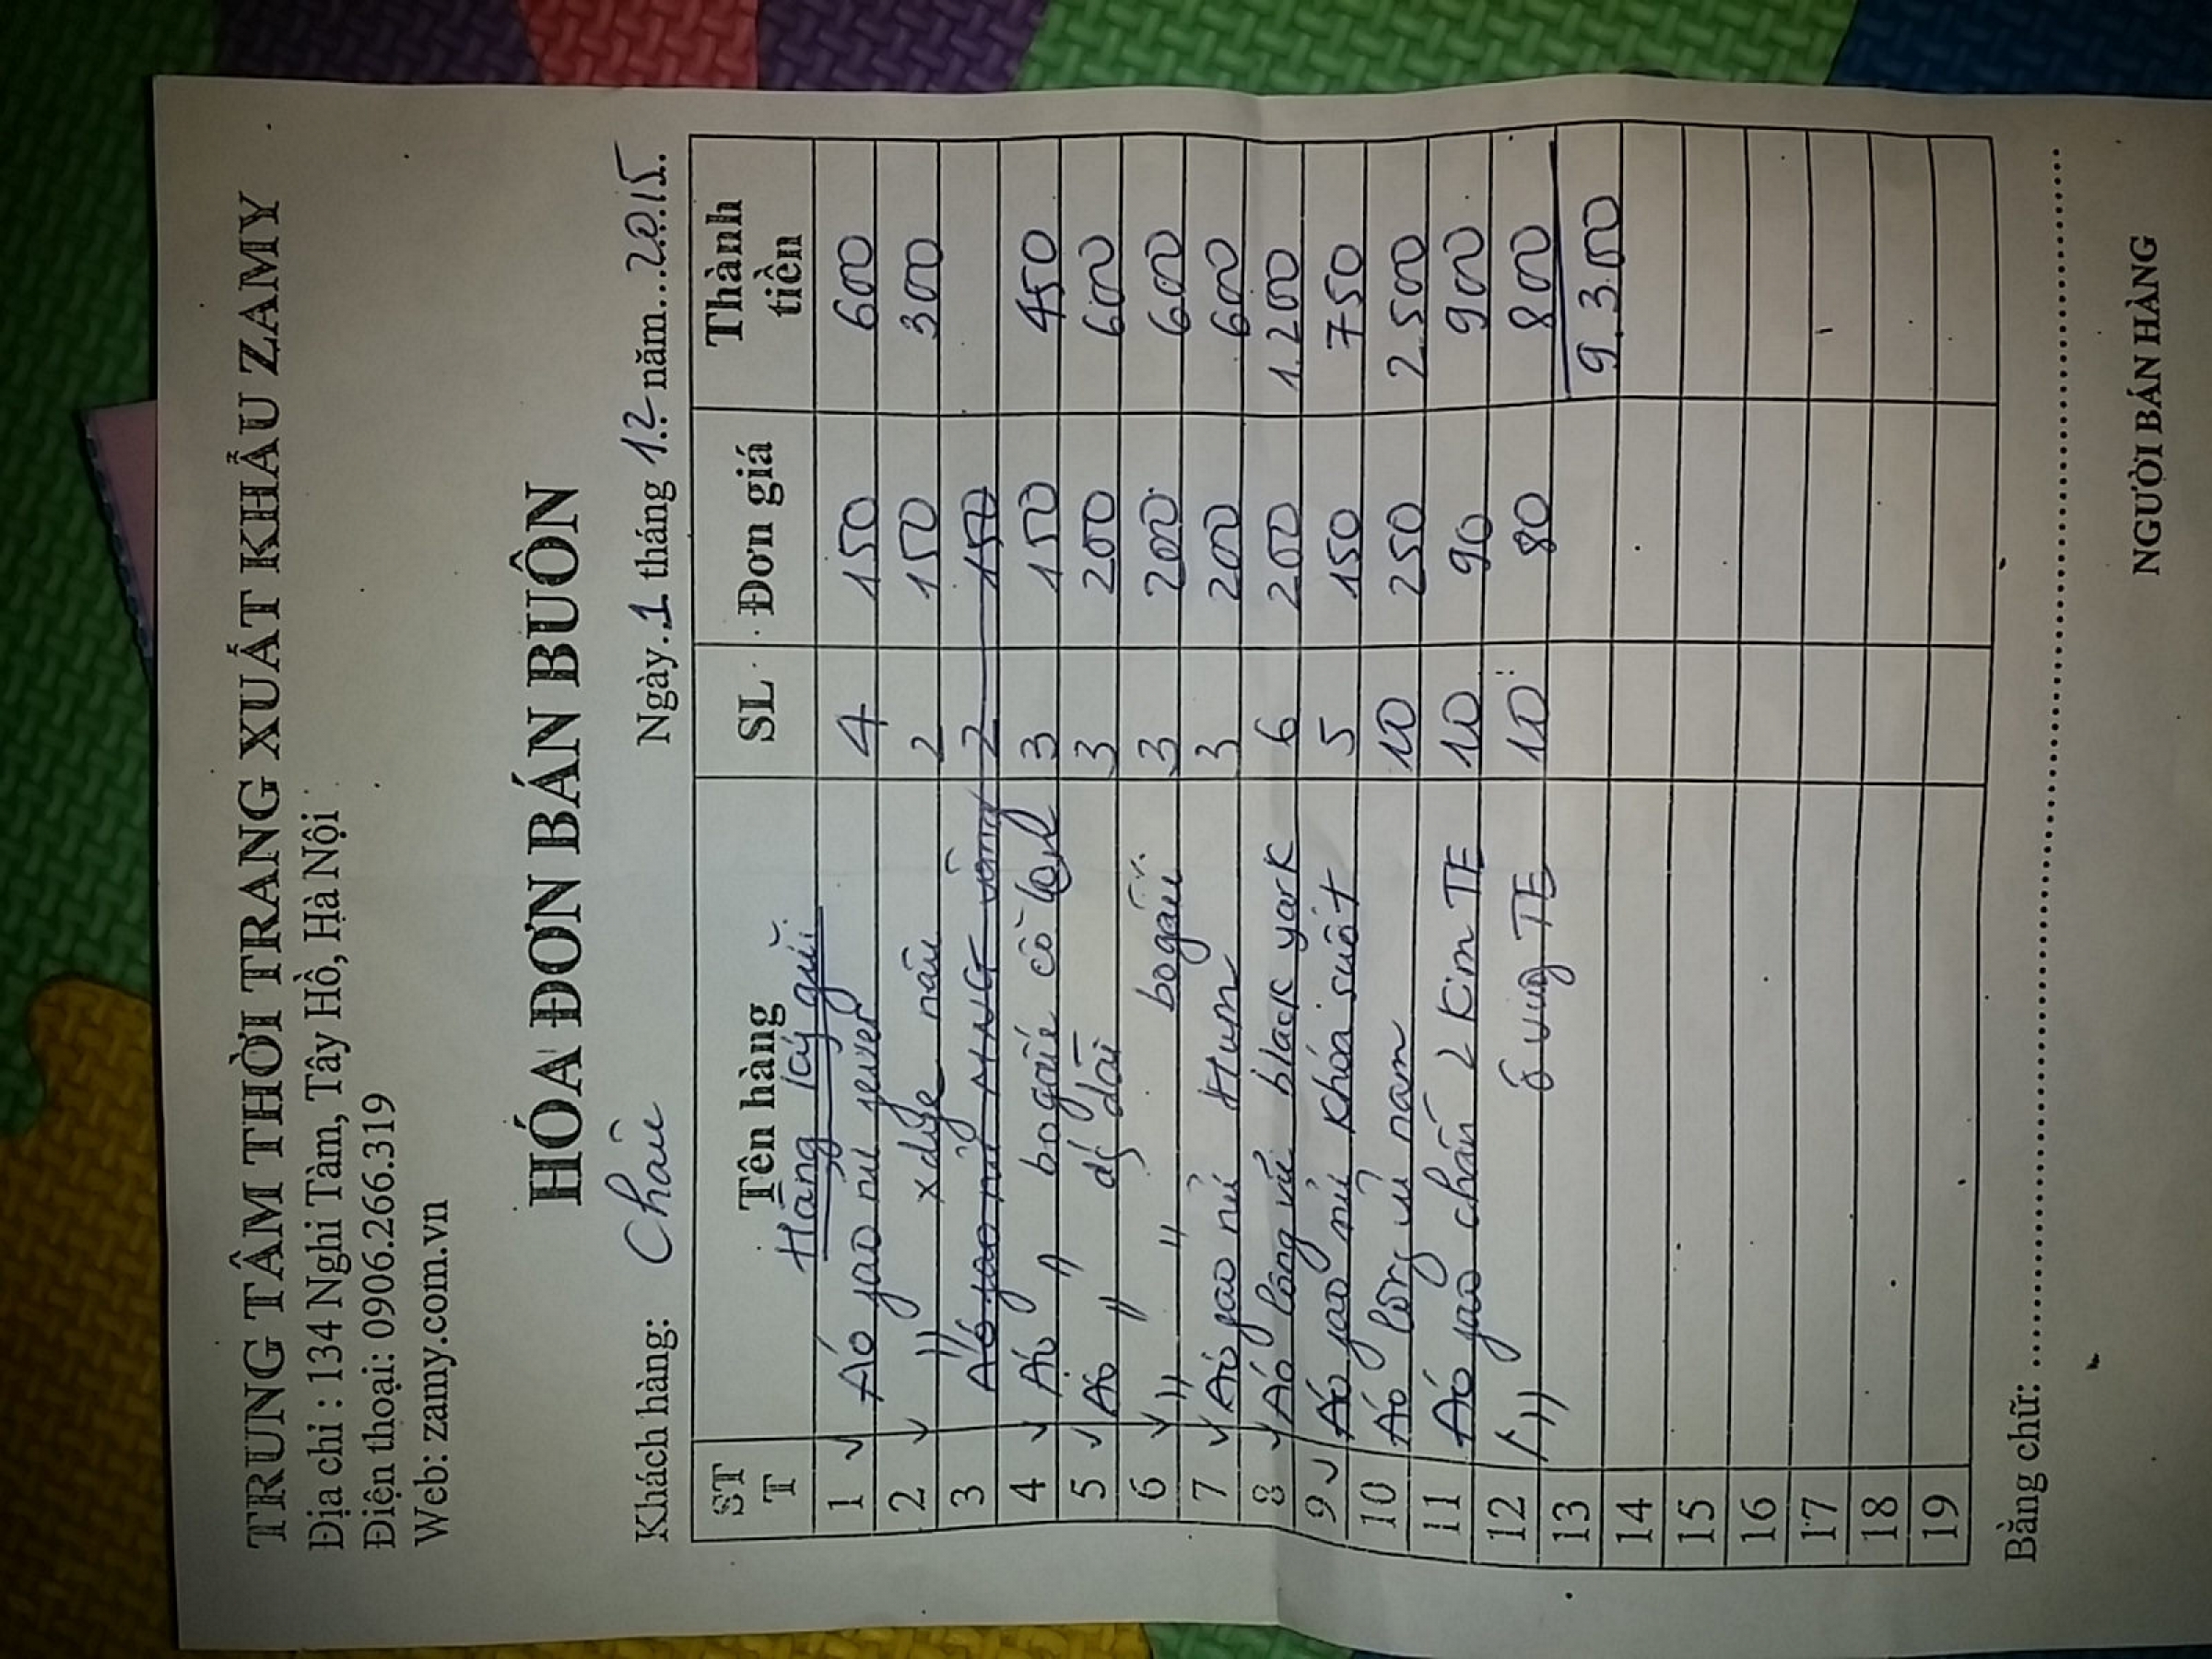 TRUNG TÂM THỜI TRANG XUẤT KHẨU ZAMY
Địa chỉ : 134 Nghi Tàm, Tây Hồ, Hà Nội
Điện thoại: 0906.266.319
Web: zamy.com.vn
HÓA ĐƠN BÁN BUÔN
Khách hàng: Châu
Ngày 1 tháng 12 năm 2015
STT Tên hàng SL Đơn giá Thành tiền
Hàng ký gửi
1 Áo jao nữ 4 150 600
2 " nâu 2 150 300
3 Áo jao nữ MNG 2 150
4 Áo " bo gấu cổ 3 150 450
5 Áo " dài 3 200 600
6 " " bo gấu 3 200 600
7 Áo jao nữ Hum 3 200 600
8 Áo lông vũ black york 6 200 1.200
9 Áo jao nữ khóa suốt 5 150 750
10 Áo lông vũ nam 10 250 2.500
11 Áo jao chần 2 kim TE 10 90 900
12 " ô vuông TE 10 80 800
13 9.300
14
15
16
17
18
19
Bằng chữ:
NGƯỜI BÁN HÀNG